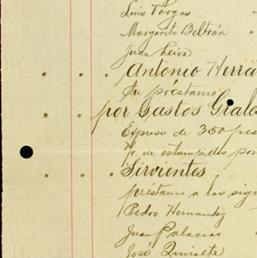 Luis Vargas "
Margarito Beltrán "
Juan Leiva
" " " Antonio Herrá
Su préstamo
por Gastos Grales
Expuso de 350 pes
" " " Yo. de estampillas pos
" " " Sirvientes
préstam a los sig
Pedro Hernandez
Juan Palacios
José